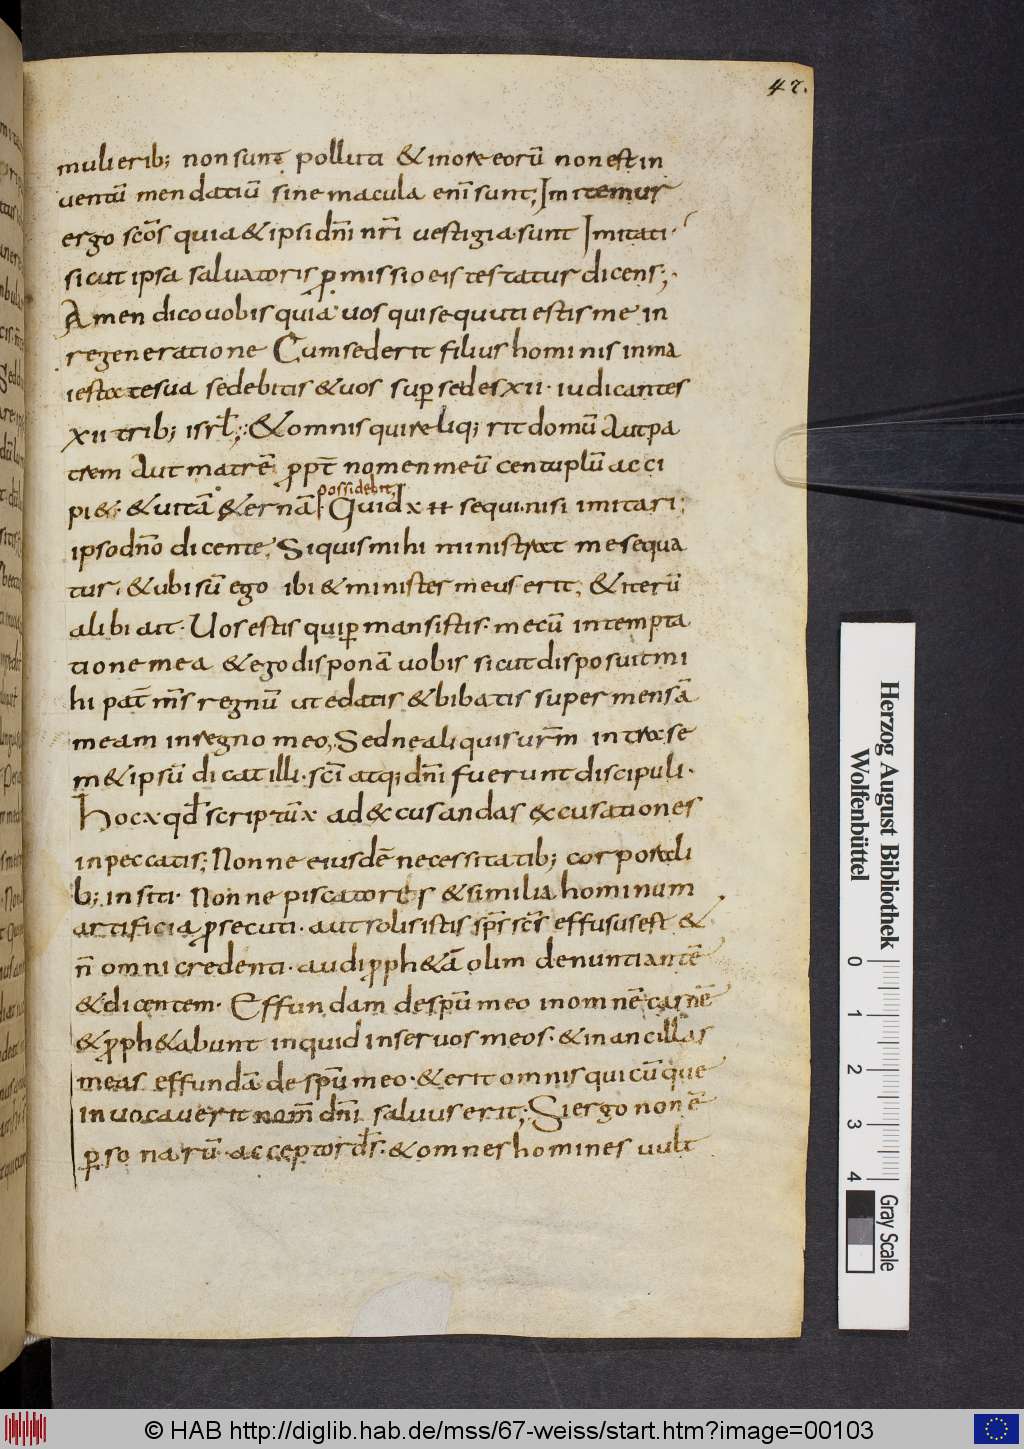 47.
mulierib; non sunt polluti & in ore eorū non est in
uentū mendatiū sine macula enī sunt; Imitemur
ergo scōs quia & ipsi dn̄i nr̄i uestigia sunt Imitati·
sicut ipsa saluatoris ꝑmissio eis testatur dicens;·
Amen dico uobis quia uos qui sequuti estis me in
regeneratione Cum sederit filius hominis in ma
iestate sua sedebitis & uos suꝑ sedes xii· iudicantes
xii trib; isrl̄;· & omnis qui reliq; rit domū Aut pa
trem Aut matrē ꝓpt̄ nomen meū centuplū acci
possidebit
pi&· & uitā &ernā· Quid x H sequi· nisi imitari;
ipso dn̄o dicente; Si quis mihi ministrat me sequa
tur· & ubi sū ego ibi & minister meus erit; & iterū
alibi ait· Uos estis qui ꝑmansistis· mecū in tempta
tione mea & ego disponā uobis sicut disposuit mi
hi pat̄ ms̄ regnū ut edatis & bibatis super mensā
meam in regno meo; Sed ne aliquis ur̄m intra se
m&ipsū dicat illi· scī atq; dn̄i fuerunt discipuli·
Hoc x qd̄ scriptū x ad excusandas excusationes
in peccatis; Nonne eiusdē necessitatib; corporali
b; insiti· Nonne piscatores & similia hominum
artificia ꝓsecuti· aut solis istis sps̄ scs̄ effusus est &
n̄ omni credenti· audi ꝓph&ā olim denuntiantē
& dicentem· Effundam de spū meo in omnē carnē
& ꝓph&abunt inquid in seruos meos· & in ancillas
meas effundā de spū meo· & erit omnis quicūque
inuocauerit nom̄ dn̄i saluus erit; Si ergo non ē
ꝑsonarū acceptor ds̄· & omnes homines uult
Herzog August Bibliothek
Wolfenbüttel
0 1 2 3 4
Gray Scale
© HAB http://diglib.hab.de/mss/67-weiss/start.htm?image=00103